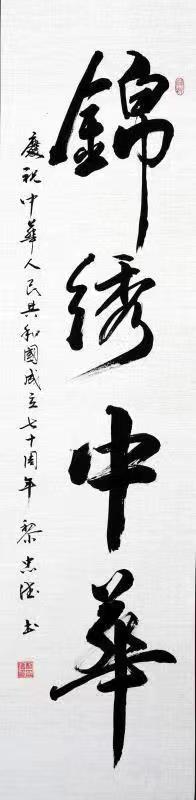 錦绣中華
慶祝中華人民共和國成立七十周年 黎忠 書